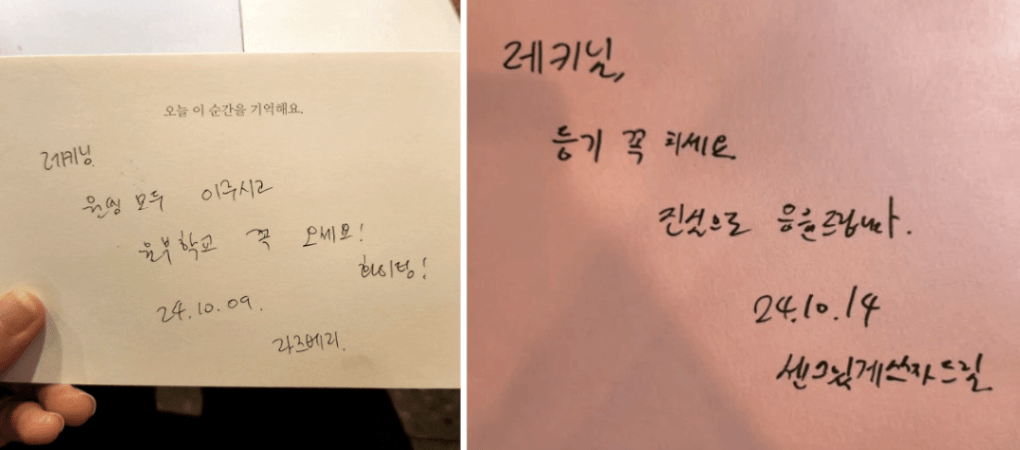 오늘 이 순간을 기억해요.
레키님
원씽 모두 이주시고
윤부학교 꼭 오세요!
화이팅!
24.10.09.
라즈베리.
레키님,
등기 꼭 치세요
진심으로 응원드립니다.
24.10.14
센그있게쓰자드림